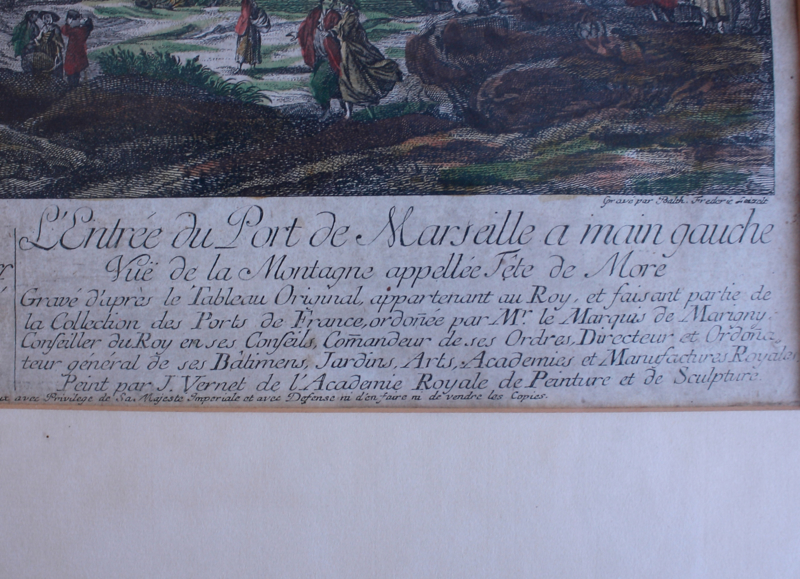 Gravé par Balth. Frederic Leizelt
L'Entrée du Port de Marseille a main gauche
Vuë de la Montagne appellée Tête de More
Gravé d'après le Tableau Original, appartenant au Roy, et faisant partie de
la Collection des Ports de France, ordoñée par Mr. le Marquis de Marigny.
Conseiller du Roy en ses Conseils, Com̃andeur de ses Ordres, Directeur et Ordoña,
teur général de ses Bâtimens, Jardins, Arts, Academies et Manufactures Royales
Peint par J. Vernet de l'Academie Royale de Peinture et de Sculpture.
avec Privilege de Sa Majesté Imperiale et avec Defense ni d'en faire ni de vendre les Copies.